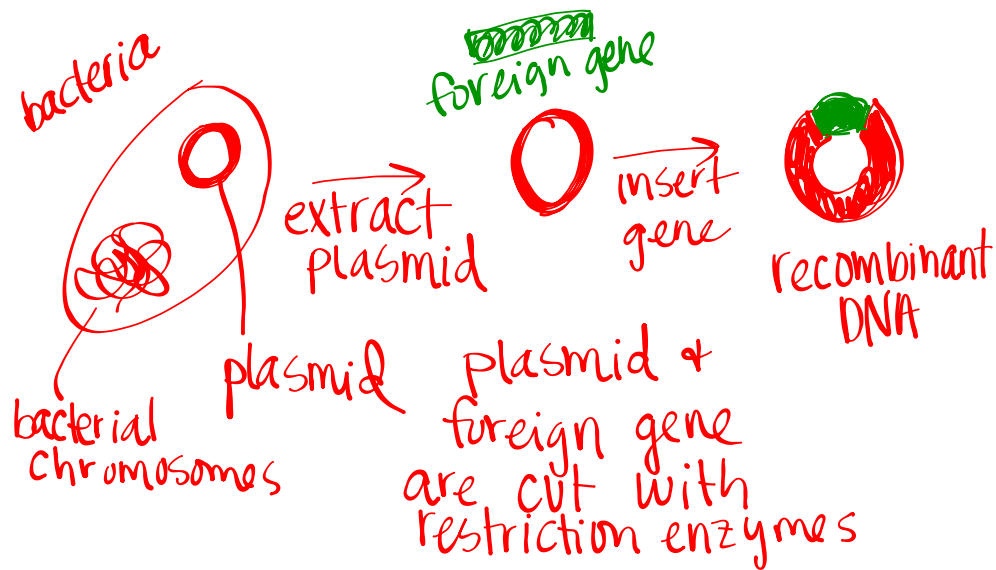 bacteria
foreign gene
extract
plasmid
insert
gene
recombinant
DNA
plasmid
bacterial
chromosomes
plasmid &
foreign gene
are cut with
restriction enzymes